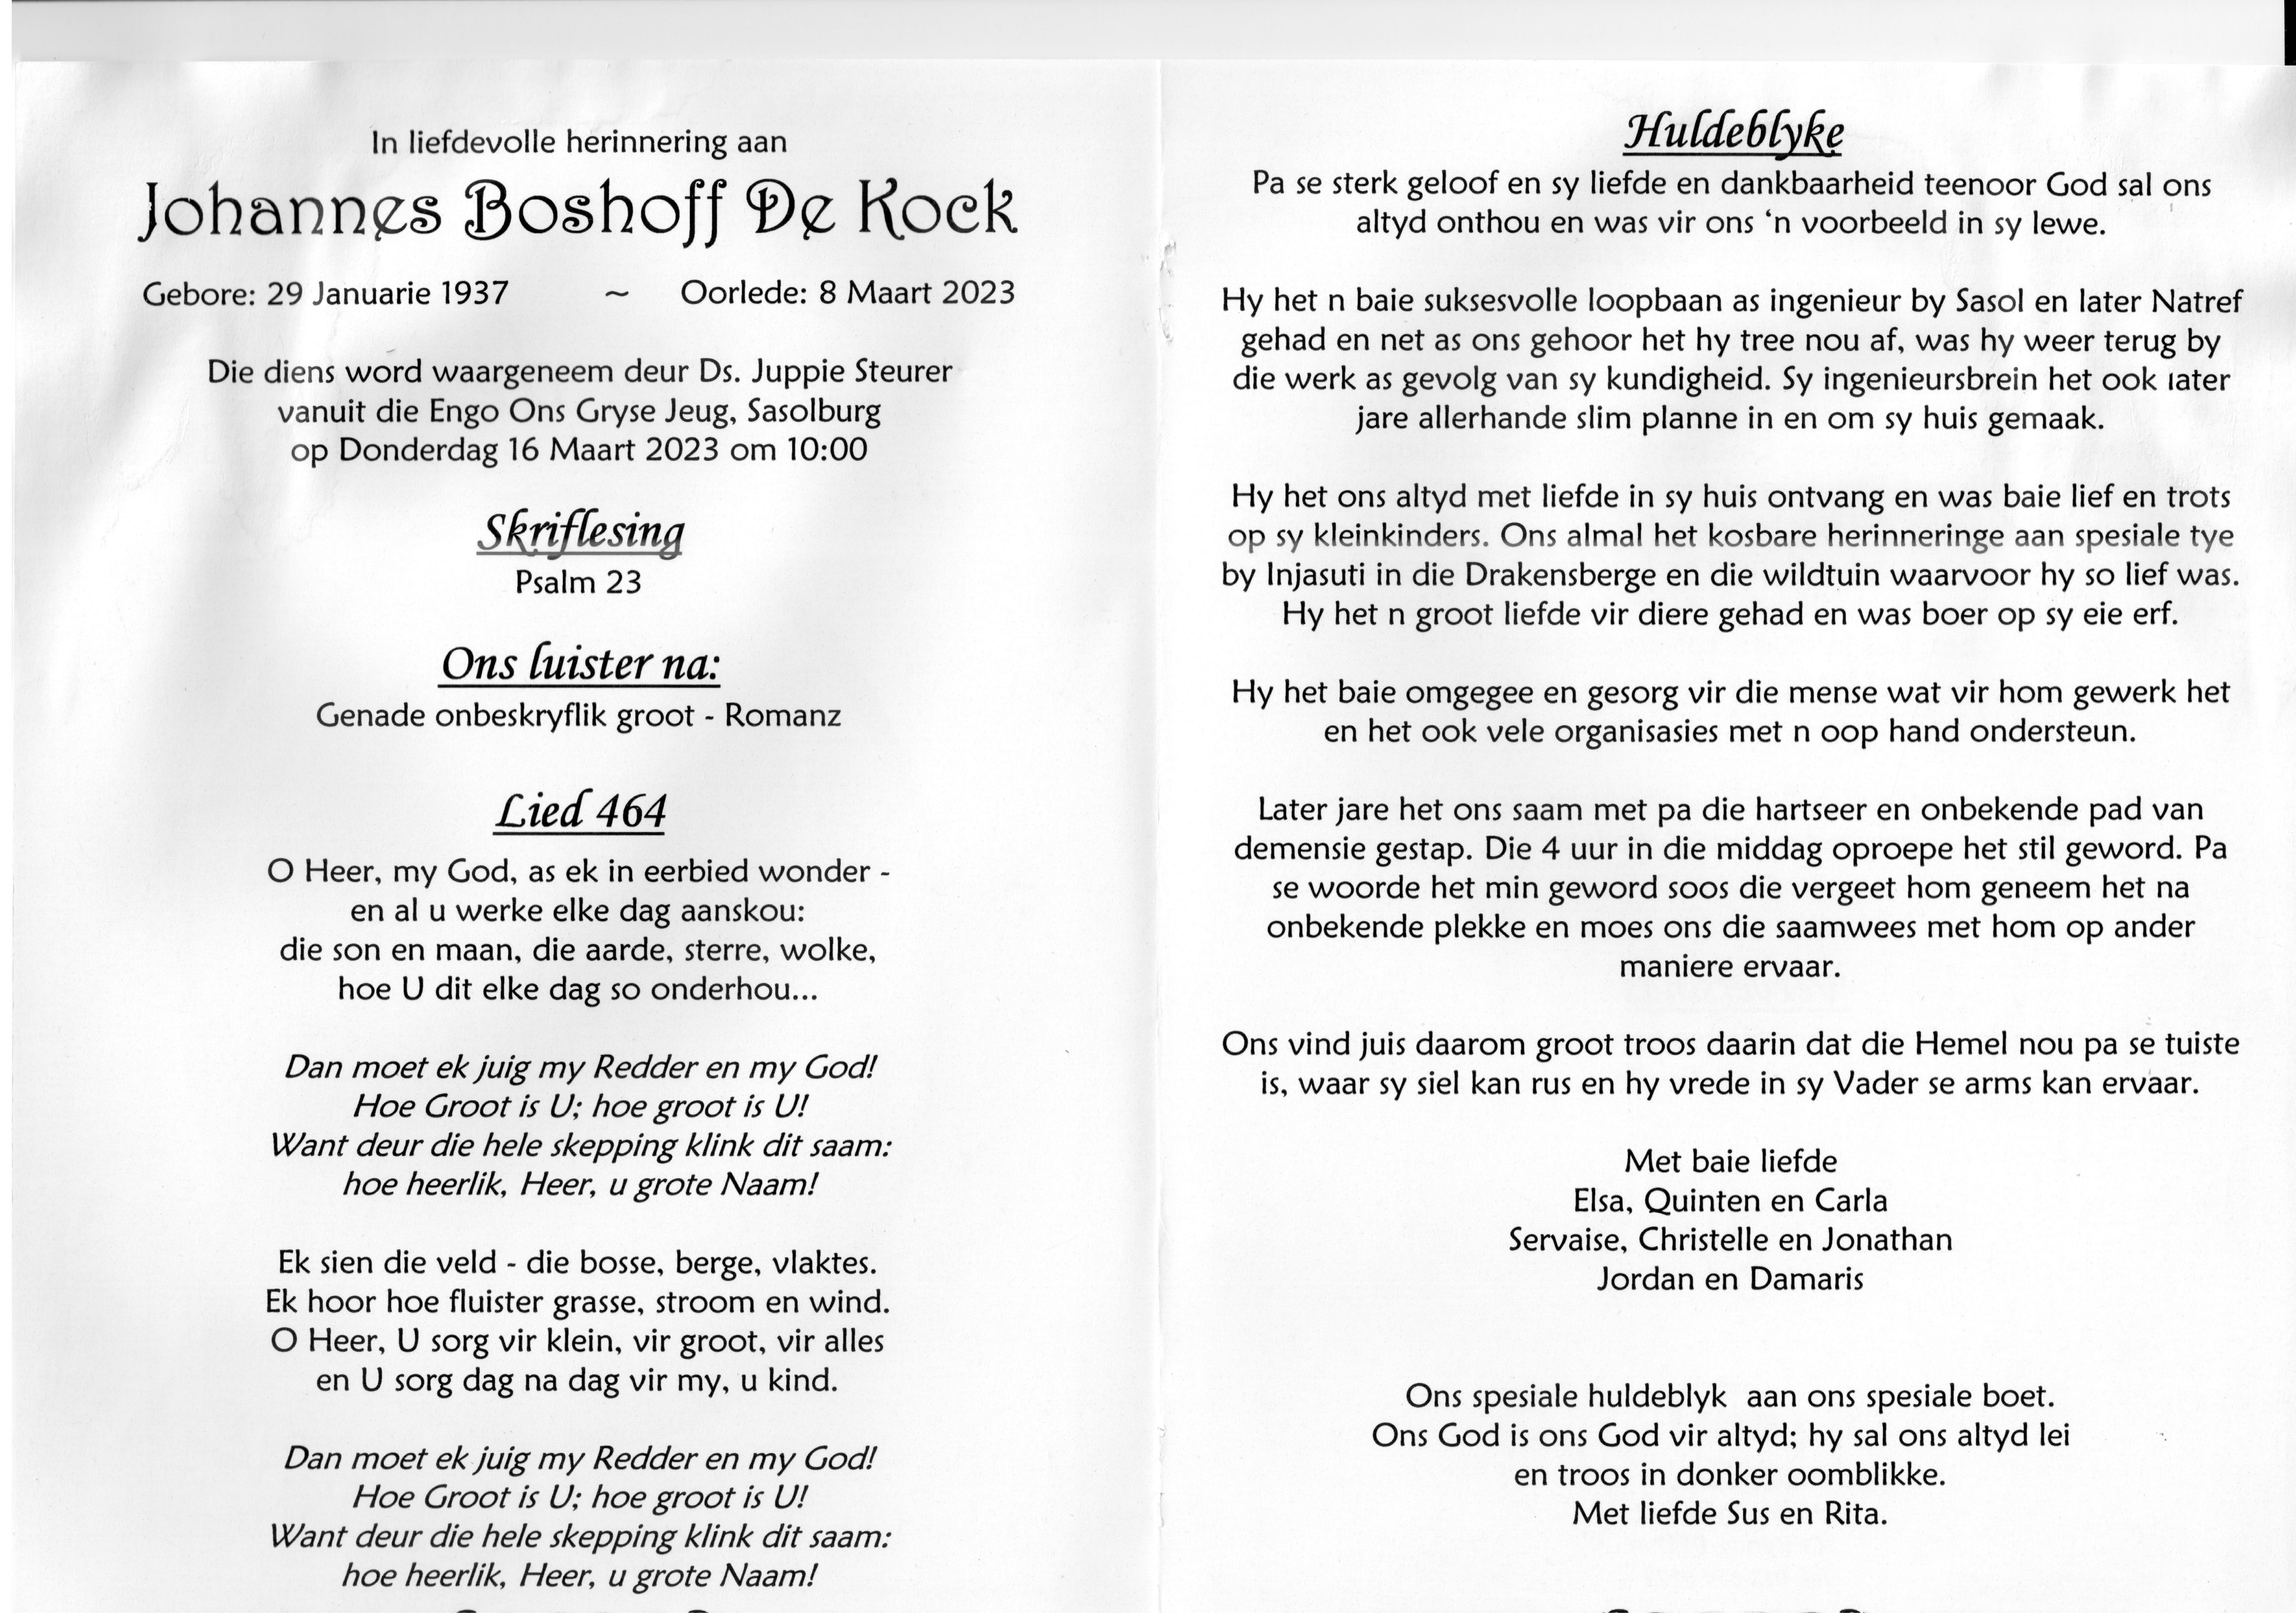 In liefdevolle herinnering aan
Johannes Boshoff De Kock
Gebore: 29 Januarie 1937 ~ Oorlede: 8 Maart 2023
Die diens word waargeneem deur Ds. Juppie Steurer
vanuit die Engo Ons Gryse Jeug, Sasolburg
op Donderdag 16 Maart 2023 om 10:00
Skriflesing
Psalm 23
Ons luister na:
Genade onbeskryflik groot - Romanz
Lied 464
O Heer, my God, as ek in eerbied wonder -
en al u werke elke dag aanskou:
die son en maan, die aarde, sterre, wolke,
hoe U dit elke dag so onderhou...
Dan moet ek juig my Redder en my God!
Hoe Groot is U; hoe groot is U!
Want deur die hele skepping klink dit saam:
hoe heerlik, Heer, u grote Naam!
Ek sien die veld - die bosse, berge, vlaktes.
Ek hoor hoe fluister grasse, stroom en wind.
O Heer, U sorg vir klein, vir groot, vir alles
en U sorg dag na dag vir my, u kind.
Dan moet ek juig my Redder en my God!
Hoe Groot is U; hoe groot is U!
Want deur die hele skepping klink dit saam:
hoe heerlik, Heer, u grote Naam!
Huldeblyke
Pa se sterk geloof en sy liefde en dankbaarheid teenoor God sal ons
altyd onthou en was vir ons ‘n voorbeeld in sy lewe.
Hy het n baie suksesvolle loopbaan as ingenieur by Sasol en later Natref
gehad en net as ons gehoor het hy tree nou af, was hy weer terug by
die werk as gevolg van sy kundigheid. Sy ingenieursbrein het ook later
jare allerhande slim planne in en om sy huis gemaak.
Hy het ons altyd met liefde in sy huis ontvang en was baie lief en trots
op sy kleinkinders. Ons almal het kosbare herinneringe aan spesiale tye
by Injasuti in die Drakensberge en die wildtuin waarvoor hy so lief was.
Hy het n groot liefde vir diere gehad en was boer op sy eie erf.
Hy het baie omgegee en gesorg vir die mense wat vir hom gewerk het
en het ook vele organisasies met n oop hand ondersteun.
Later jare het ons saam met pa die hartseer en onbekende pad van
demensie gestap. Die 4 uur in die middag oproepe het stil geword. Pa
se woorde het min geword soos die vergeet hom geneem het na
onbekende plekke en moes ons die saamwees met hom op ander
maniere ervaar.
Ons vind juis daarom groot troos daarin dat die Hemel nou pa se tuiste
is, waar sy siel kan rus en hy vrede in sy Vader se arms kan ervaar.
Met baie liefde
Elsa, Quinten en Carla
Servaise, Christelle en Jonathan
Jordan en Damaris
Ons spesiale huldeblyk aan ons spesiale boet.
Ons God is ons God vir altyd; hy sal ons altyd lei
en troos in donker oomblikke.
Met liefde Sus en Rita.